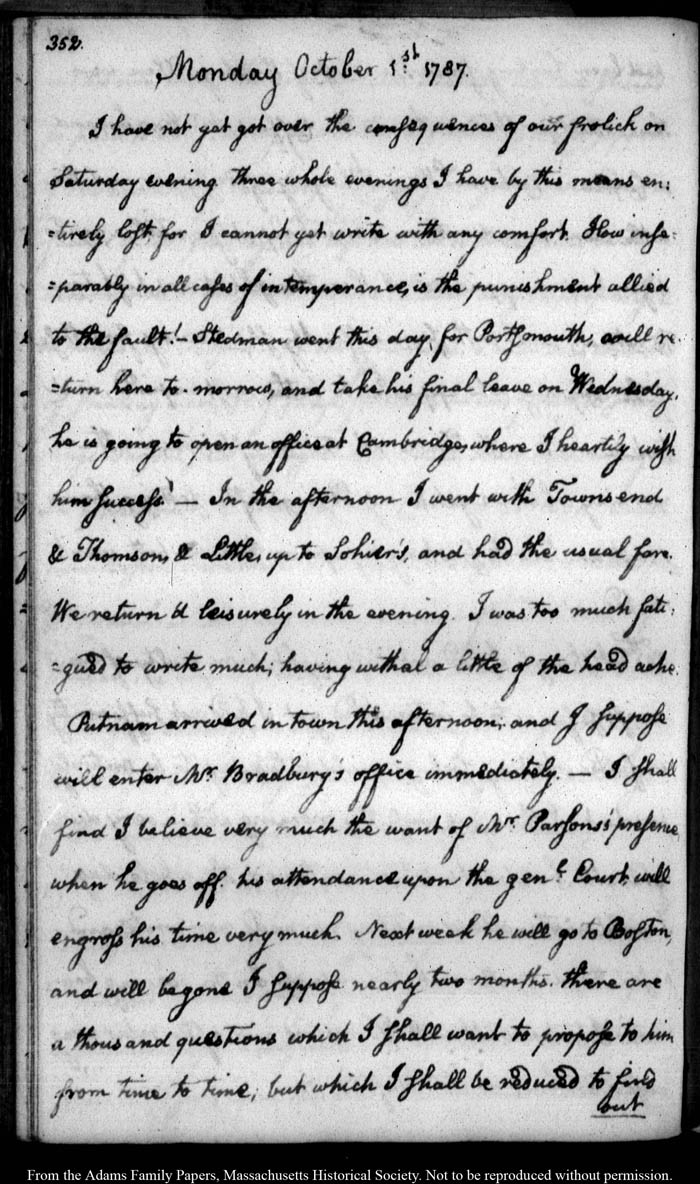 352.
Monday October 1st: 1787.
I have not yet got over the consequences of our frolick on
Saturday evening. three whole evenings I have by this means en:
=tirely lost, for I cannot yet write with any comfort. How inse:
=parably in all cases of intemperance, is the punishment allied
to the fault! — Stedman went this day, for Portsmouth, will re:
=turn here to-morrow, and take his final leave on Wednesday.
he is going to open an office at Cambridge, where I heartily wish
him success! — In the afternoon I went with Townsend
& Thomson, & Little, up to Sohier's, and had the usual fare.
We return'd leisurely in the evening. I was too much fati:
=gued to write much; having withal a little of the head ache.
Putnam arrived in town this afternoon; and I suppose
will enter Mr. Bradbury's office immediately. — I shall
find I believe very much the want of Mr. Parsons's presence,
when he goes off. his attendance upon the genl: Court, will
engross his time very much. Next week he will go to Boston,
and will be gone I suppose nearly two months. there are
a thousand questions which I shall want to propose to him
from time to time; but which I shall be reduced to find
out
From the Adams Family Papers, Massachusetts Historical Society. Not to be reproduced without permission.